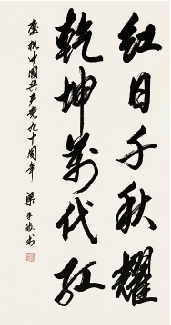 红日千秋耀
乾坤万代红
庆祝中国共产党九十周年 梁